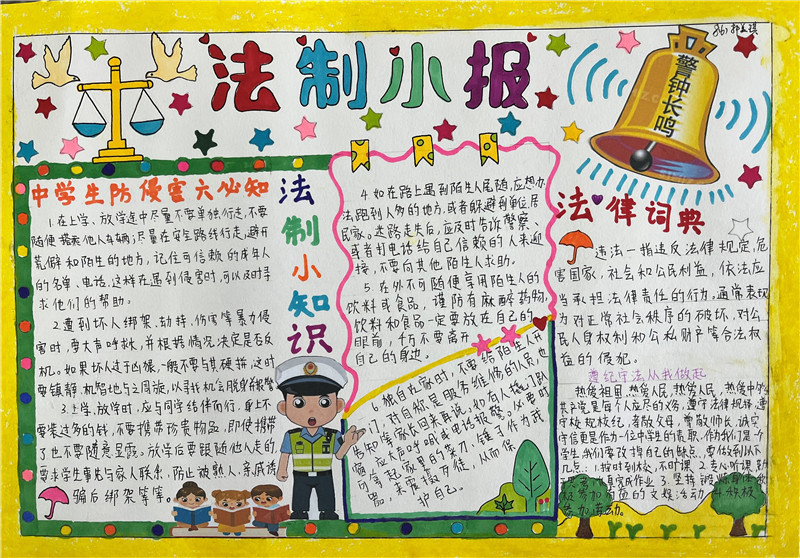 法制小报
警钟长鸣
中学生防侵害六必知
1.在上学、放学途中尽量不要单独行走,不要
随便搭乘他人车辆;尽量在安全路线行走,避开
荒僻和陌生的地方,记住可信赖的成年人
的名单、电话,这样在遇到侵害时,可以及时寻
求他们的帮助。
2.遭到坏人绑架、劫持、伤害等暴力侵
害时,要大声呼救,并根据情况决定是否反
机。如果坏人过于凶残,一般不要与其硬拼,这时
要镇静、机智地与之周旋,以寻找机会脱身
3.上学、放学时,应与同学结伴而行,身上不
要装过多的钱,不要携带珍贵物品,即使携带
了也不要随意显露。放学后要跟随他人走的,
要求学生事先与家人联系,防止被熟人、亲戚诱
骗后绑架等等。
法制小知识
4.如在路上遇到陌生人尾随,应想办
法跑到人多的地方,或者躲避到单位居
民家。迷路走失后,应及时告诉警察
或者打电话给自己信赖的人来迎
接,不要向其他陌生人求助。
5.在外不可随便享用陌生人的
饮料或食品,谨防有麻醉药物,
饮料和食品一定要放在自己的
眼前,千万不要离开
自己的身边。
6.独自在家时,不要给陌生人开
门,对自称是服务维修的人员,也
告知等家长回来再说,如有人撬门趴
窗,应大声呼喊或电话报警。必要时
可拿起家里的菜刀、锤子作为武
器,来震撼歹徒,从而保
护自己。
法律词典
违法一指违反法律规定,危
害国家,社会和公民利益,依法应
当承担法律责任的行为,通常表现
为对正常社会秩序的破坏,对公
民人身权利和公私财产等合法权
益的侵犯。
遵纪守法从我做起
热爱祖国,热爱人民,热爱中国
共产党是每个人应尽的义务,遵守法律规律,遵
守校规校纪,孝敬父母,尊敬师长,诚实
守信更是作为一位中学生的责职,作为我们是一个
学生我们要改掉自己的缺点,要做到以下
几点:1.按时到校,不旷课 2.专心听课
完成作业 3.坚持锻炼身体
参加有益的文娱活动 4.积极
参加活动。